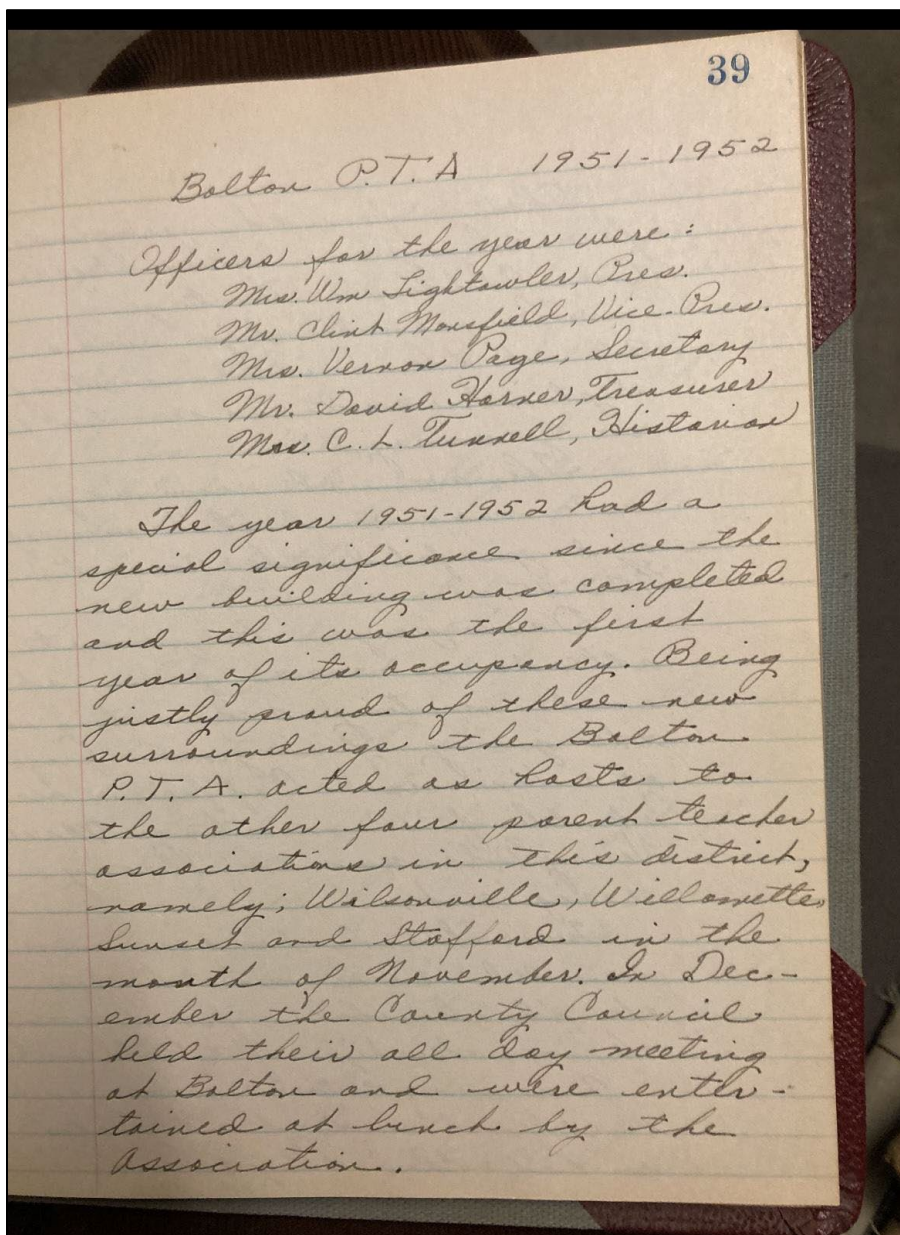 39
Bolton P.T.A 1951-1952
Officers for the year were:
Mrs. Wm Lightowler, Pres.
Mr. Clint Mansfield, Vice-Pres.
Mrs. Vernon Page, Secretary
Mr. David Horner, Treasurer
Mrs. C. L. Tunnell, Historian
The year 1951-1952 had a
special significance since the
new building was completed
and this was the first
year of its occupancy. Being
justly proud of these new
surroundings the Bolton
P.T.A. acted as hosts to
the other four parent teacher
associations in this district,
namely; Wilsonville, Willamette,
Sunset and Stafford in the
month of November. In Dec-
ember the County Council
held their all day meeting
at Bolton and were enter-
tained at lunch by the
Association.